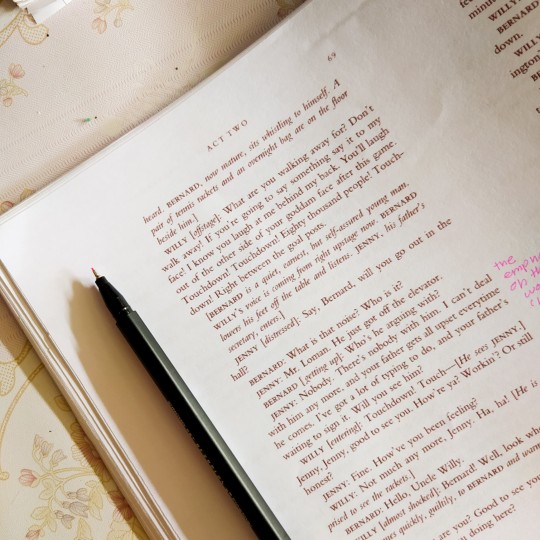 69
ACT TWO
heard. BERNARD, now mature, sits whistling to himself. A
pair of tennis rackets and an overnight bag are on the floor
beside him.]
WILLY [offstage]: What are you walking away for? Don't
walk away! If you're going to say something say it to my
face! I know you laugh at me behind my back. You'll laugh
out of the other side of your goddam face after this game.
Touchdown! Touchdown! Eighty thousand people! Touch-
down! Right between the goal posts.
[BERNARD is a quiet, earnest, but self-assured young man.
WILLY's voice is coming from right upstage now. BERNARD
lowers his feet off the table and listens. JENNY, his father's
secretary, enters.]
JENNY [distressed]: Say, Bernard, will you go out in the
hall?
BERNARD: What is that noise? Who is it?
JENNY: Mr. Loman. He just got off the elevator.
BERNARD [getting up]: Who's he arguing with?
JENNY: Nobody. There's nobody with him. I can't deal
with him any more, and your father gets all upset everytime
he comes. I've got a lot of typing to do, and your father's
waiting to sign it. Will you see him?
WILLY [entering]: Touchdown! Touch—[He sees JENNY.]
Jenny, Jenny, good to see you. How're ya? Workin'? Or still
honest?
JENNY: Fine. How've you been feeling?
WILLY: Not much any more, Jenny. Ha, ha! [He is
prised to see the rackets.]
BERNARD: Hello, Uncle Willy.
WILLY [almost shocked]: Bernard! Well, look who
comes quickly, guiltily, to BERNARD and
are you? Good to see you
you doing here?
minu
BERNARD
down.
WILLY
ington?
the